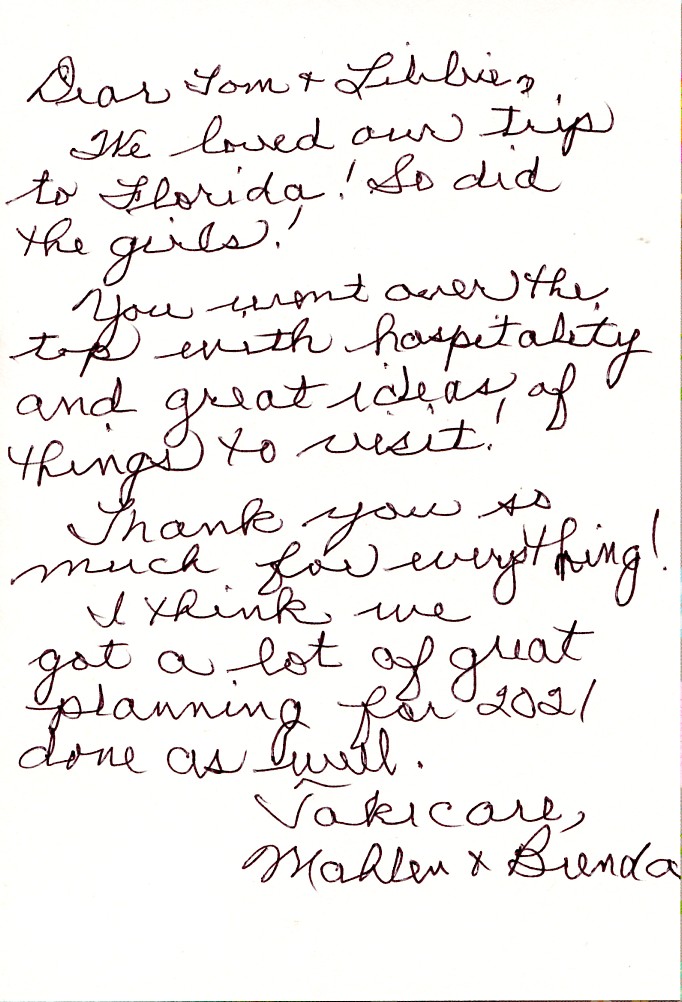 Dear Tom + Libbie,
We loved our trip
to Florida! So did
the girls!
You went over the
top with hospitality
and great ideas of
things to visit!
Thank you so
much for everything!
I think we
got a lot of great
planning for 2021
done as well.
Take care,
Mahlen & Brenda